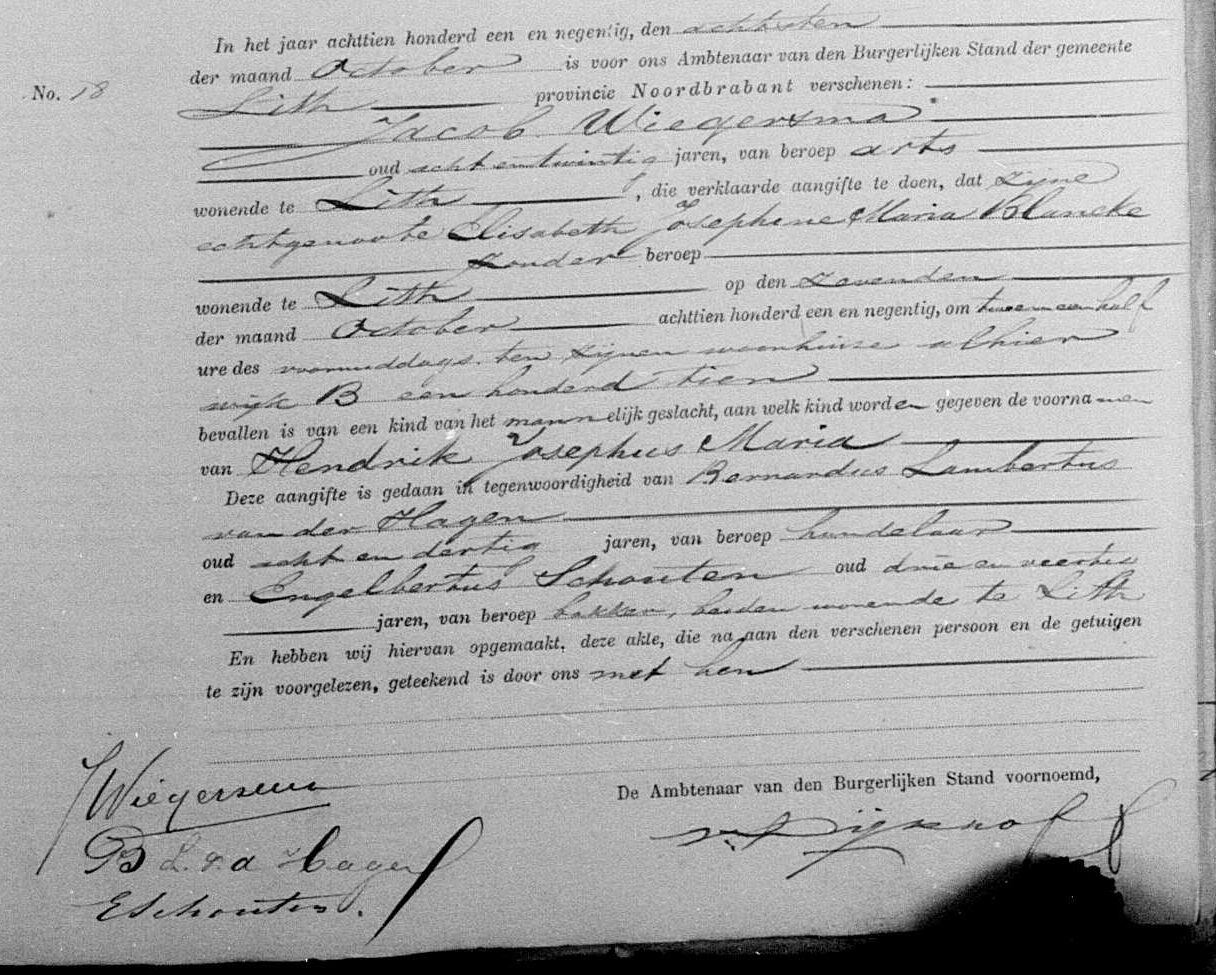 In het jaar achttien honderd een en negentig, den achtsten
der maand October is voor ons Ambtenaar van den Burgerlijken Stand der gemeente
No. 18
Lith provincie Noordbrabant verschenen:
Jacob Wiegersma
oud acht en twintig jaren, van beroep arts
wonende te Lith, die verklaarde aangifte te doen, dat zyne
echtgenoote Elisabeth Josephine Maria Blancke
zonder beroep
wonende te Lith op den zevenden
der maand October achttien honderd een en negentig, om twee en een half
ure des voormiddags ten zijnen woonhuize alhier
wijk B een honderd tien
bevallen is van een kind van het mannelijk geslacht, aan welk kind worden gegeven de voornamen
van Hendrik Josephus Maria
Deze aangifte is gedaan in tegenwoordigheid van Bernardus Lambertus
van der Hagen
oud acht en dertig jaren, van beroep handelaar
en Engelbertus Schouten oud drie en veertig
jaren, van beroep bakker, beiden wonende te Lith
En hebben wij hiervan opgemaakt, deze akte, die na aan den verschenen persoon en de getuigen
te zijn voorgelezen, geteekend is door ons met hen
De Ambtenaar van den Burgerlijken Stand voornoemd,
JWiegersma
B L. v. d Hagen
ESchouten.